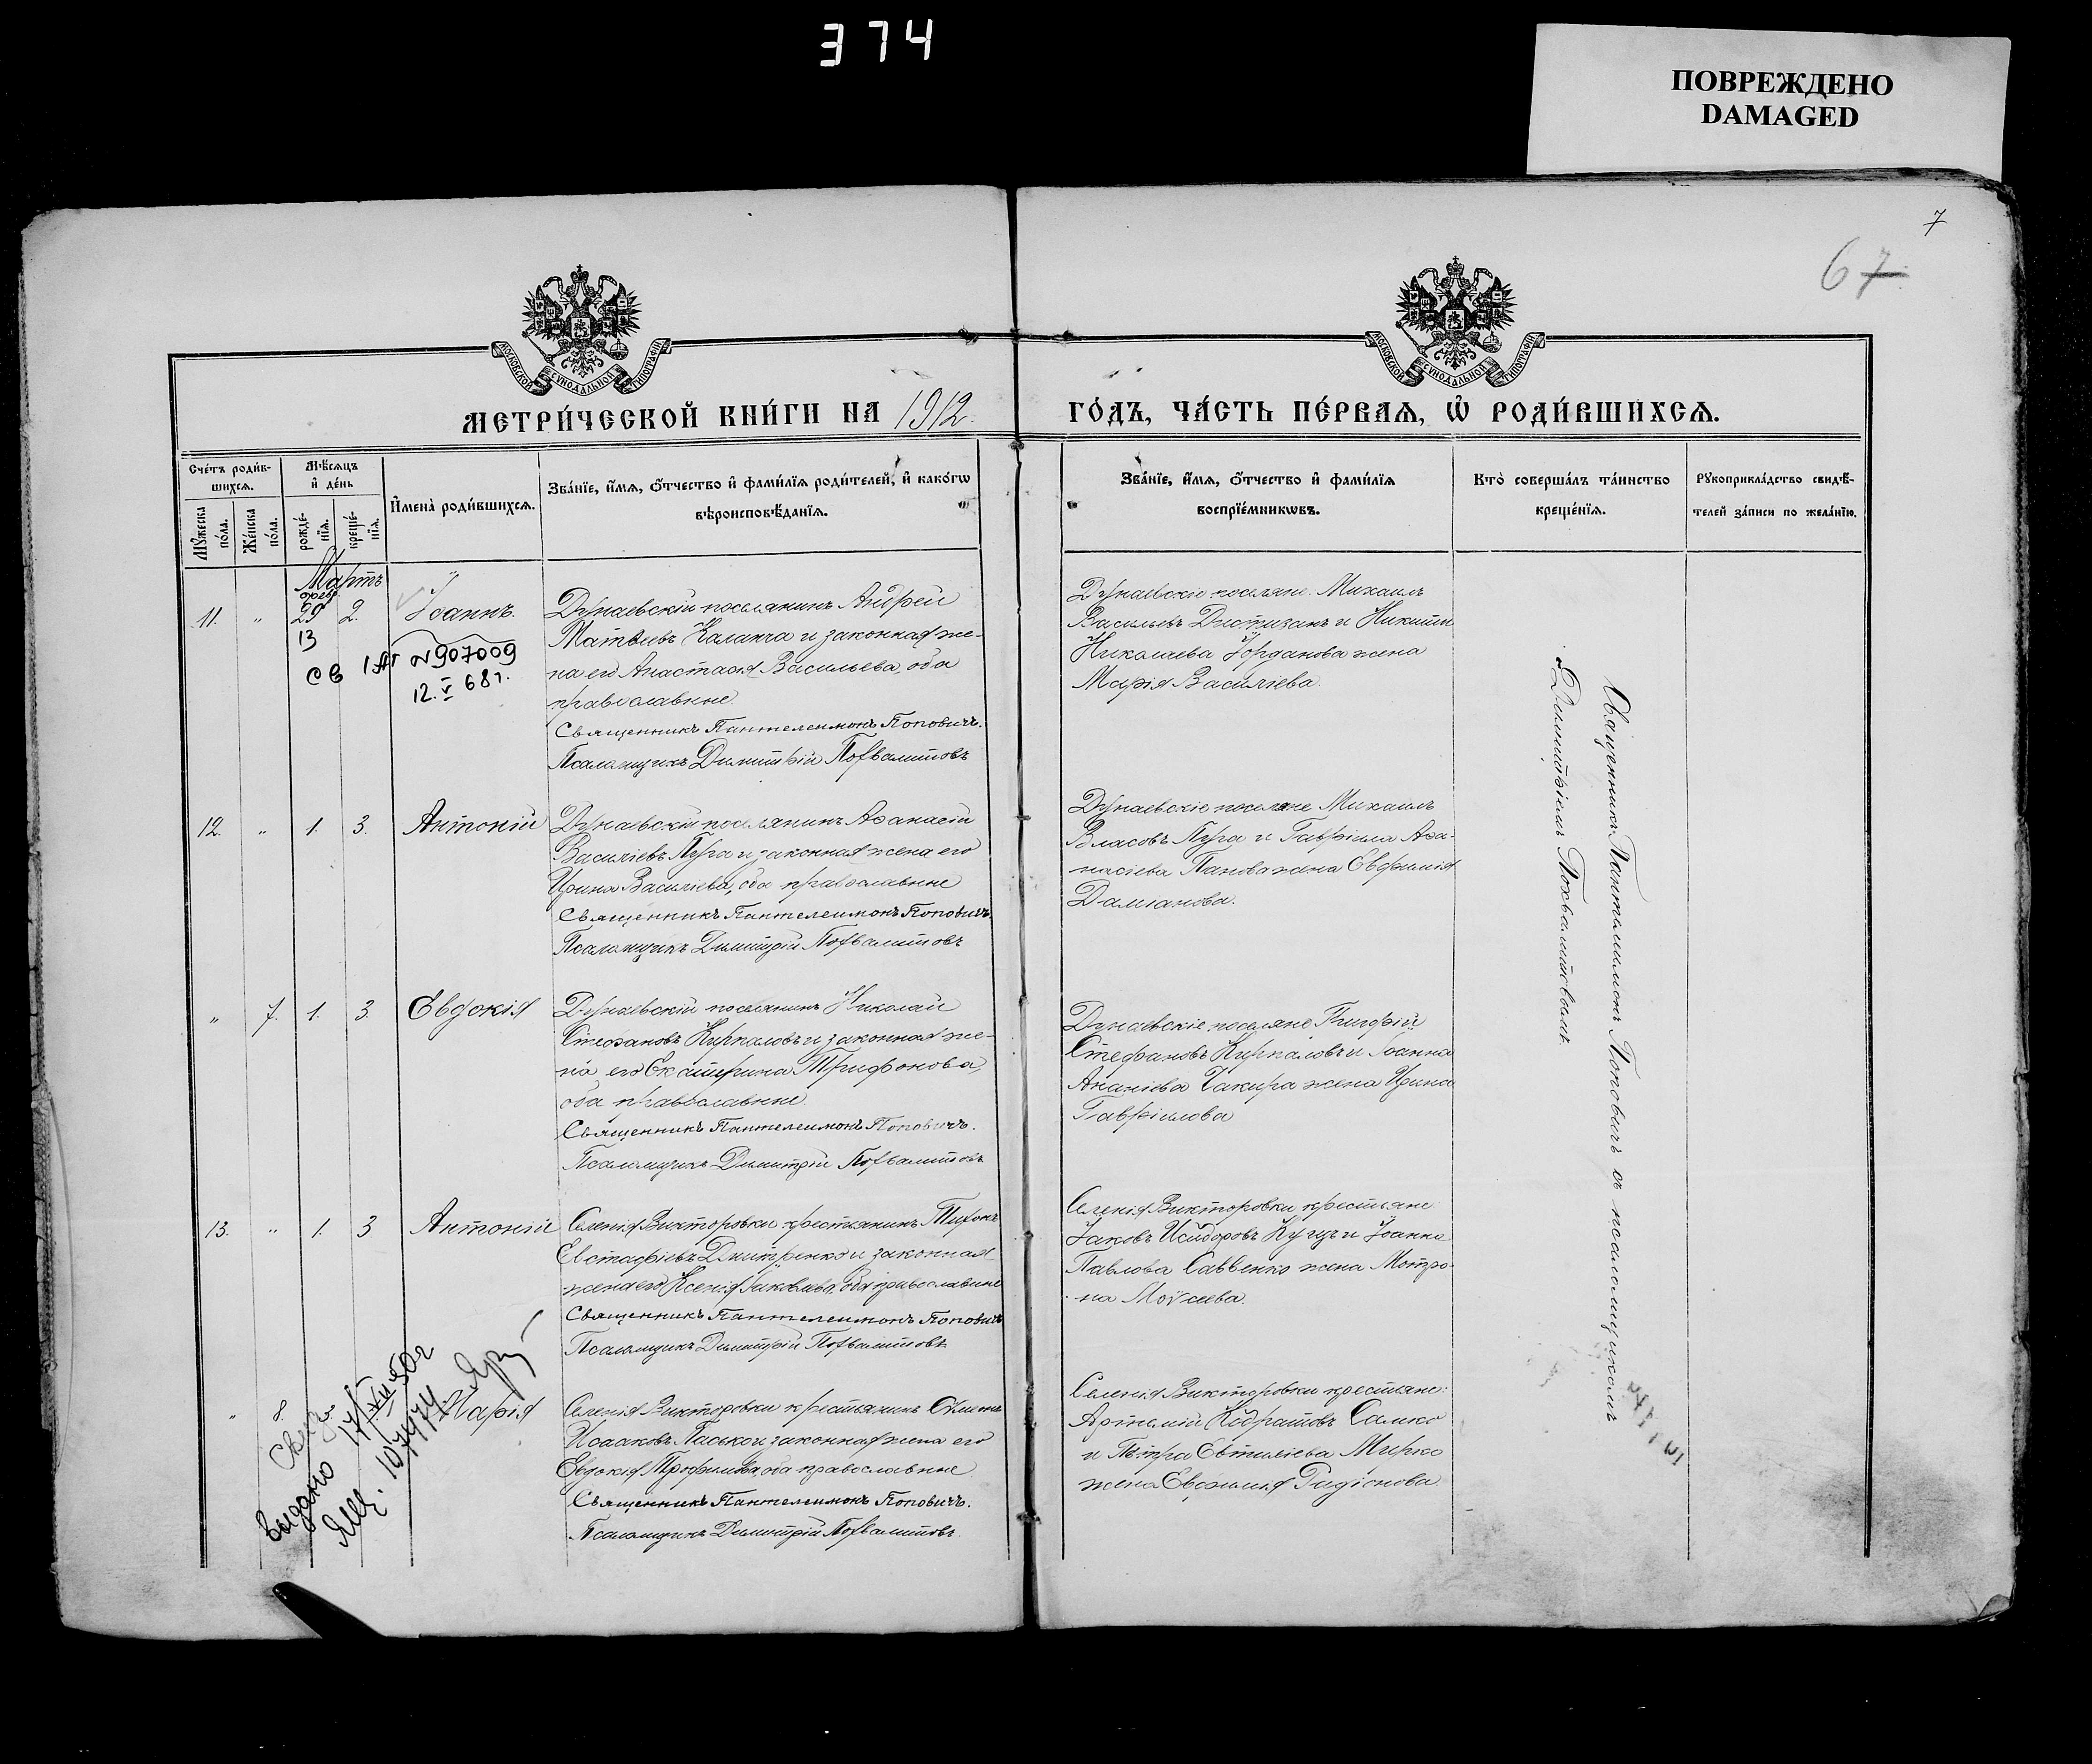 374
ПОВРЕЖДЕНО
DAMAGED
7
67
МОСКОВСКОЙ СѴНОДАЛЬНОЙ ТИПОГРАФІИ
МОСКОВСКОЙ СѴНОДАЛЬНОЙ ТИПОГРАФІИ
МЕТРИ́ЧЕСКОЙ КНИ́ГИ НА 1912
ГО́ДЪ, ЧА́СТЬ ПЕ́РВАЯ, Ѡ РОДИ́ВШИХСЯ.
Сче́тъ роди́в-
шихся.
Му́жеска по́ла.
Же́нска по́ла.
Мѣ́сяцъ
и де́нь
рожде́-
нїя.
креще́-
нїя.
И҆мена̀ роди́вшихся.
Зва́нїе, и҆́мя, ѻ҆́тчество и҆ фами́лїя роди́телей, и҆ како́гѡ
вѣроисповѣ́данїя.
Зва́нїе, и҆́мя, ѻ҆́тчество и҆ фами́лїя
воспрїе́мникѡвъ.
Кто̀ соверша́лъ та́инство
креще́нїя.
Рꙋкоприкла́дство свидѣ́-
телей за́писи по жела́нїю.
Мартъ
февр.
11. " 29 2. Іоаннъ.
13
св 1 АГ №907009
12.V 68г.
Дунаевскій поселянинъ Андрей
Матвѣевъ Каланча и законная же-
на его Анастасія Васильева, оба
православные.
Священникъ Пантелеимонъ Поповичъ.
Псаломщикъ Димитрій Похвалитовъ
Дунаевскіе поселяне Михаилъ
Васильевъ Диотизанъ и Никиты
Николаева Іорданова жена
Марія Василіева.
12. " 1. 3. Антоній
Дунаевскій поселянинъ Аѳанасій
Василіевъ Пуга и законная жена его
Ирина Василіева, оба православные
Священникъ Пантелеимонъ Поповичъ.
Псаломщикъ Димитрій Похвалитовъ
Дунаевскіе поселяне Михаилъ
Власовъ Пуга и Гавріила Аѳа-
насіева Панова жена Евфимія
Даміанова.
" 7. 1. 3. Евдокія
Дунаевскій поселянинъ Николай
Стефановъ Курпаловъ и законная же-
на его Екатерина Трифонова,
оба православные.
Священникъ Пантелеимонъ Поповичъ.
Псаломщикъ Димитрій Похвалитовъ
Дунаевскіе поселяне
Стефановъ Курпаловъ и Іоанна
Ананіева Чакира жена Ирина
Гавріилова
13. " 1. 3 Антоній
Селенія Викторовки крестьянинъ Тихонъ
Евстафіевъ Дмитренко и законная
жена его Ксенія Іаковлева, оба православные
Священникъ Пантелеимонъ Поповичъ
Псаломщикъ Димитрій Похвалитовъ
Селенія Викторовки крестьяне
Іаковъ Исидоровъ Куцъ и Іоанна
Павлова Савенко жена Мотро-
на Моѵсеева.
" 8. Марія
выдано 17/VII 50г
ЯЩ. 107974
Селенія Викторовки крестьянинъ
Исааковъ Пасько и законная жена его
Евдокія Трофимова, оба православные
Священникъ Пантелеимонъ Поповичъ.
Псаломщикъ Димитрій Похвалитовъ.
Селенія Викторовки крестьяне:
Артемій Кодратовъ Самко
и Петра Евтиліева Мирко
жена Евфимія Радіонова
Священникъ Пантелеимонъ Поповичъ съ псаломщикомъ
Димитріемъ Похвалитовымъ.